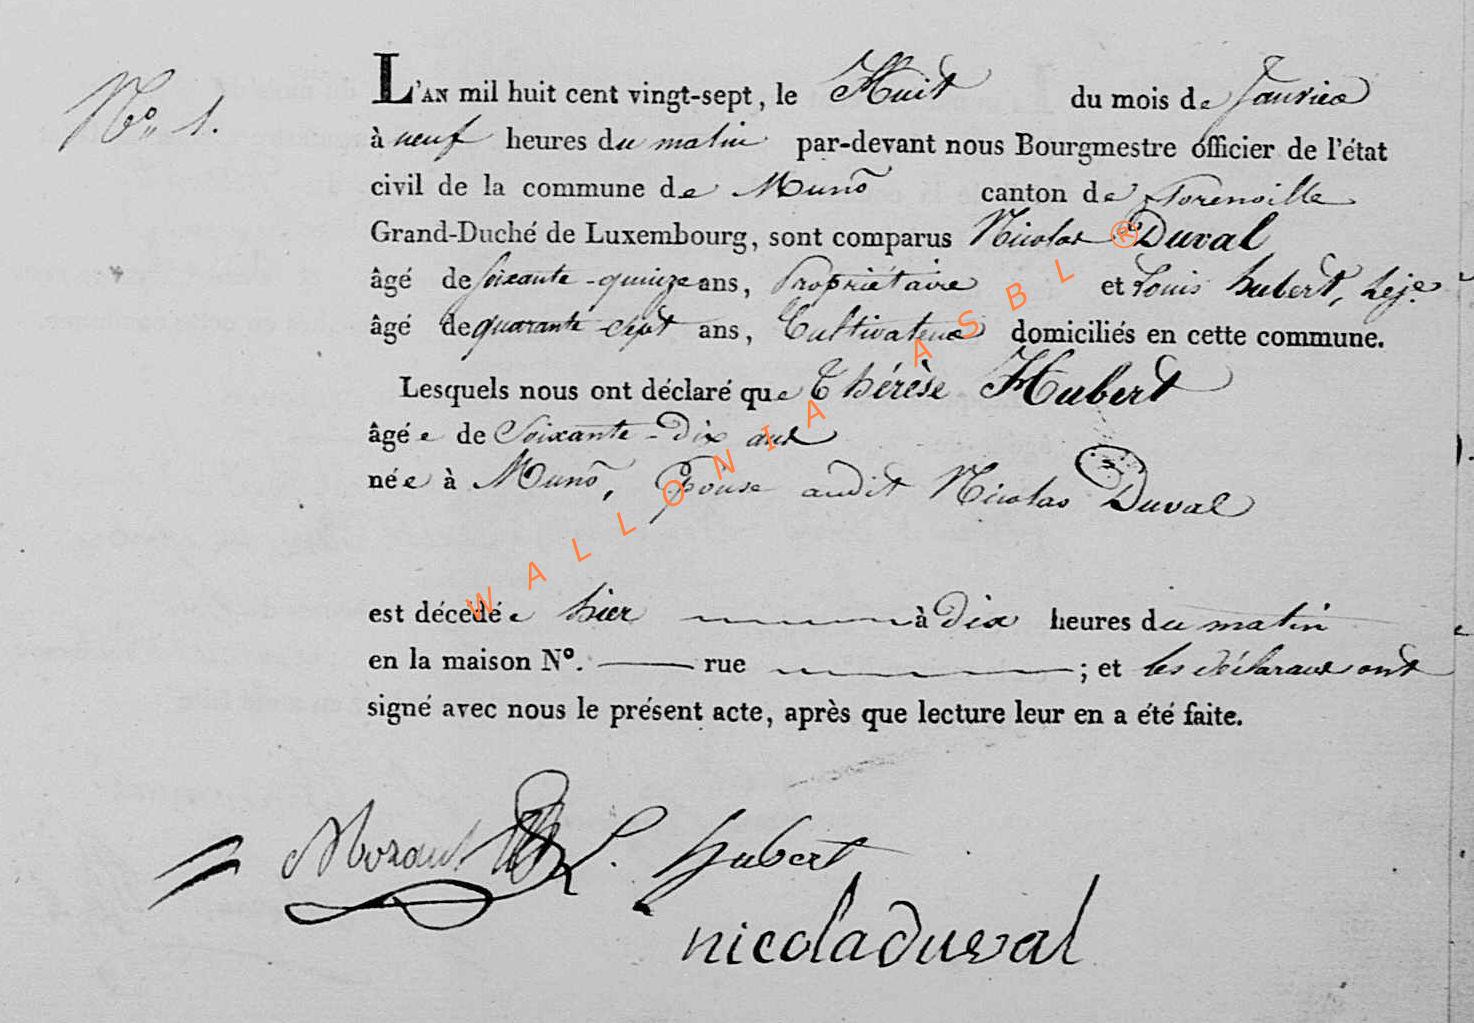 N.° 1.
L'AN mil huit cent vingt-sept, le Huit du mois de Janvier
à neuf heures du matin par-devant nous Bourgmestre officier de l'état
civil de la commune de Muno canton de Florenville
Grand-Duché de Luxembourg, sont comparus Nicolas Duval
âgé de soixante-quinze ans, Propriétaire et Louis hubert, Leje.
âgé de quarante-sept ans, Cultivateur domiciliés en cette commune.
Lesquels nous ont déclaré que Thérèse Hubert
âgée de Soixante-Dix ans
née à Muno, Epouse audit Nicolas Duval
est décédée hier à Dix heures du matin
en la maison N°. rue ; et les déclarans ont
signé avec nous le présent acte, après que lecture leur en a été faite.
L. hubert
nicola duval
WALLONIA ASBL ®